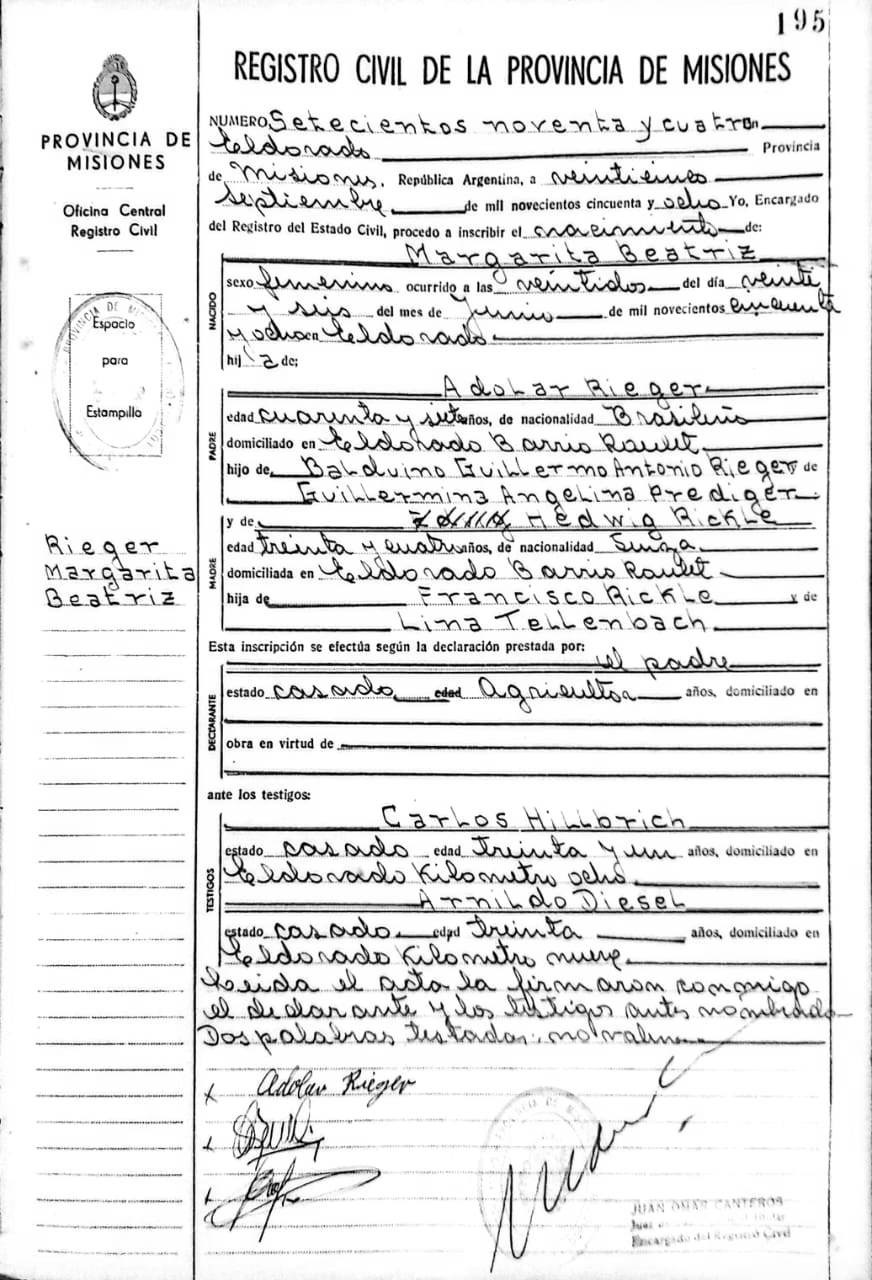 195
REGISTRO CIVIL DE LA PROVINCIA DE MISIONES
PROVINCIA DE
MISIONES
Oficina Central
Registro Civil
Espacio
para
Estampilla
Rieger
Margarita
Beatriz
NUMERO Setecientos noventa y cuatro en
Eldorado Provincia
de Misiones, República Argentina, a veinticinco
Septiembre de mil novecientos cincuenta y ocho Yo, Encargado
del Registro del Estado Civil, procedo a inscribir el nacimiento de:
Margarita Beatriz
NACIDO
sexo femenino ocurrido a las veintidos del día veinti
y seis del mes de Junio de mil novecientos cincuenta
y ocho en Eldorado
hij a de:
Adolar Rieger
PADRE
edad cuarenta y siete años, de nacionalidad Brasileño
domiciliado en Eldorado Barrio
hijo de Balduino Guillermo Antonio Rieger y de
Guillermina Angelina Prediger
y de Hedwig Rickle
MADRE
edad treinta y cuatro años, de nacionalidad Suiza
domiciliada en Eldorado Barrio
hija de Francisco Rickle y de
Lina Tellenbach
Esta inscripción se efectúa según la declaración prestada por:
el padre
DECLARANTE
estado casado edad Agricultor años, domiciliado en
obra en virtud de
ante los testigos:
Carlos Hillbrich
TESTIGOS
estado casado edad treinta y un años, domiciliado en
Eldorado Kilometro ocho
Arnildo Diesel
estado casado edad treinta años, domiciliado en
Eldorado Kilometro nueve
Leida el acta la firmaron conmigo
el declarante y los testigos antes nombrado
Dos palabras testadas: no valen
Adolar Rieger
JUAN OMAR CANTEROS
Encargado del Registro Civil